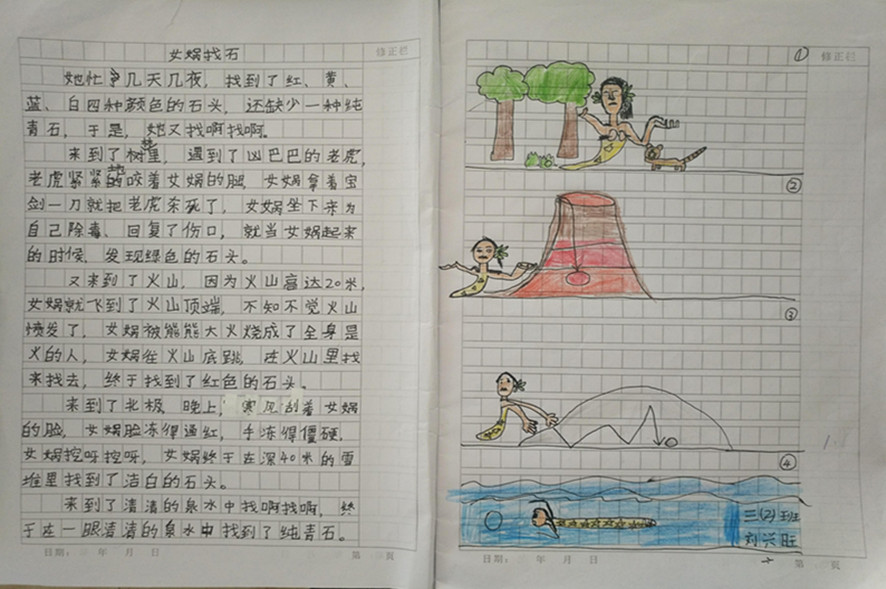 女娲找石
修正栏
她忙了几天几夜，找到了红、黄、
蓝、白四种颜色的石头，还缺少一种纯
青石，于是，她又找啊找啊。
来到了树林里，遇到了凶巴巴的老虎，
老虎紧紧地咬着女娲的腿，女娲拿着宝
剑一刀就把老虎杀死了，女娲坐下来为
自己除毒、回复了伤口，就当女娲起来
的时候，发现绿色的石头。
又来到了火山，因为火山高达20米，
女娲就飞到了火山顶端，不知不觉火山
喷发了，女娲被熊熊大火烧成了全身是
火的人，女娲往火山底跳，在火山里找
来找去，终于找到了红色的石头。
来到了北极，晚上，寒风刮着女娲
的脸，女娲脸冻得通红，手冻得僵硬，
女娲挖呀挖呀，女娲终于在深40米的雪
堆里找到了洁白的石头。
来到了清清的泉水中找啊找啊，终
于在一眼清清的泉水中找到了纯青石。
日期： 年 月 日
第 頁
①
修正栏
②
③
④
三(2)班
刘兴旺
日期： 年 月 日
第 頁